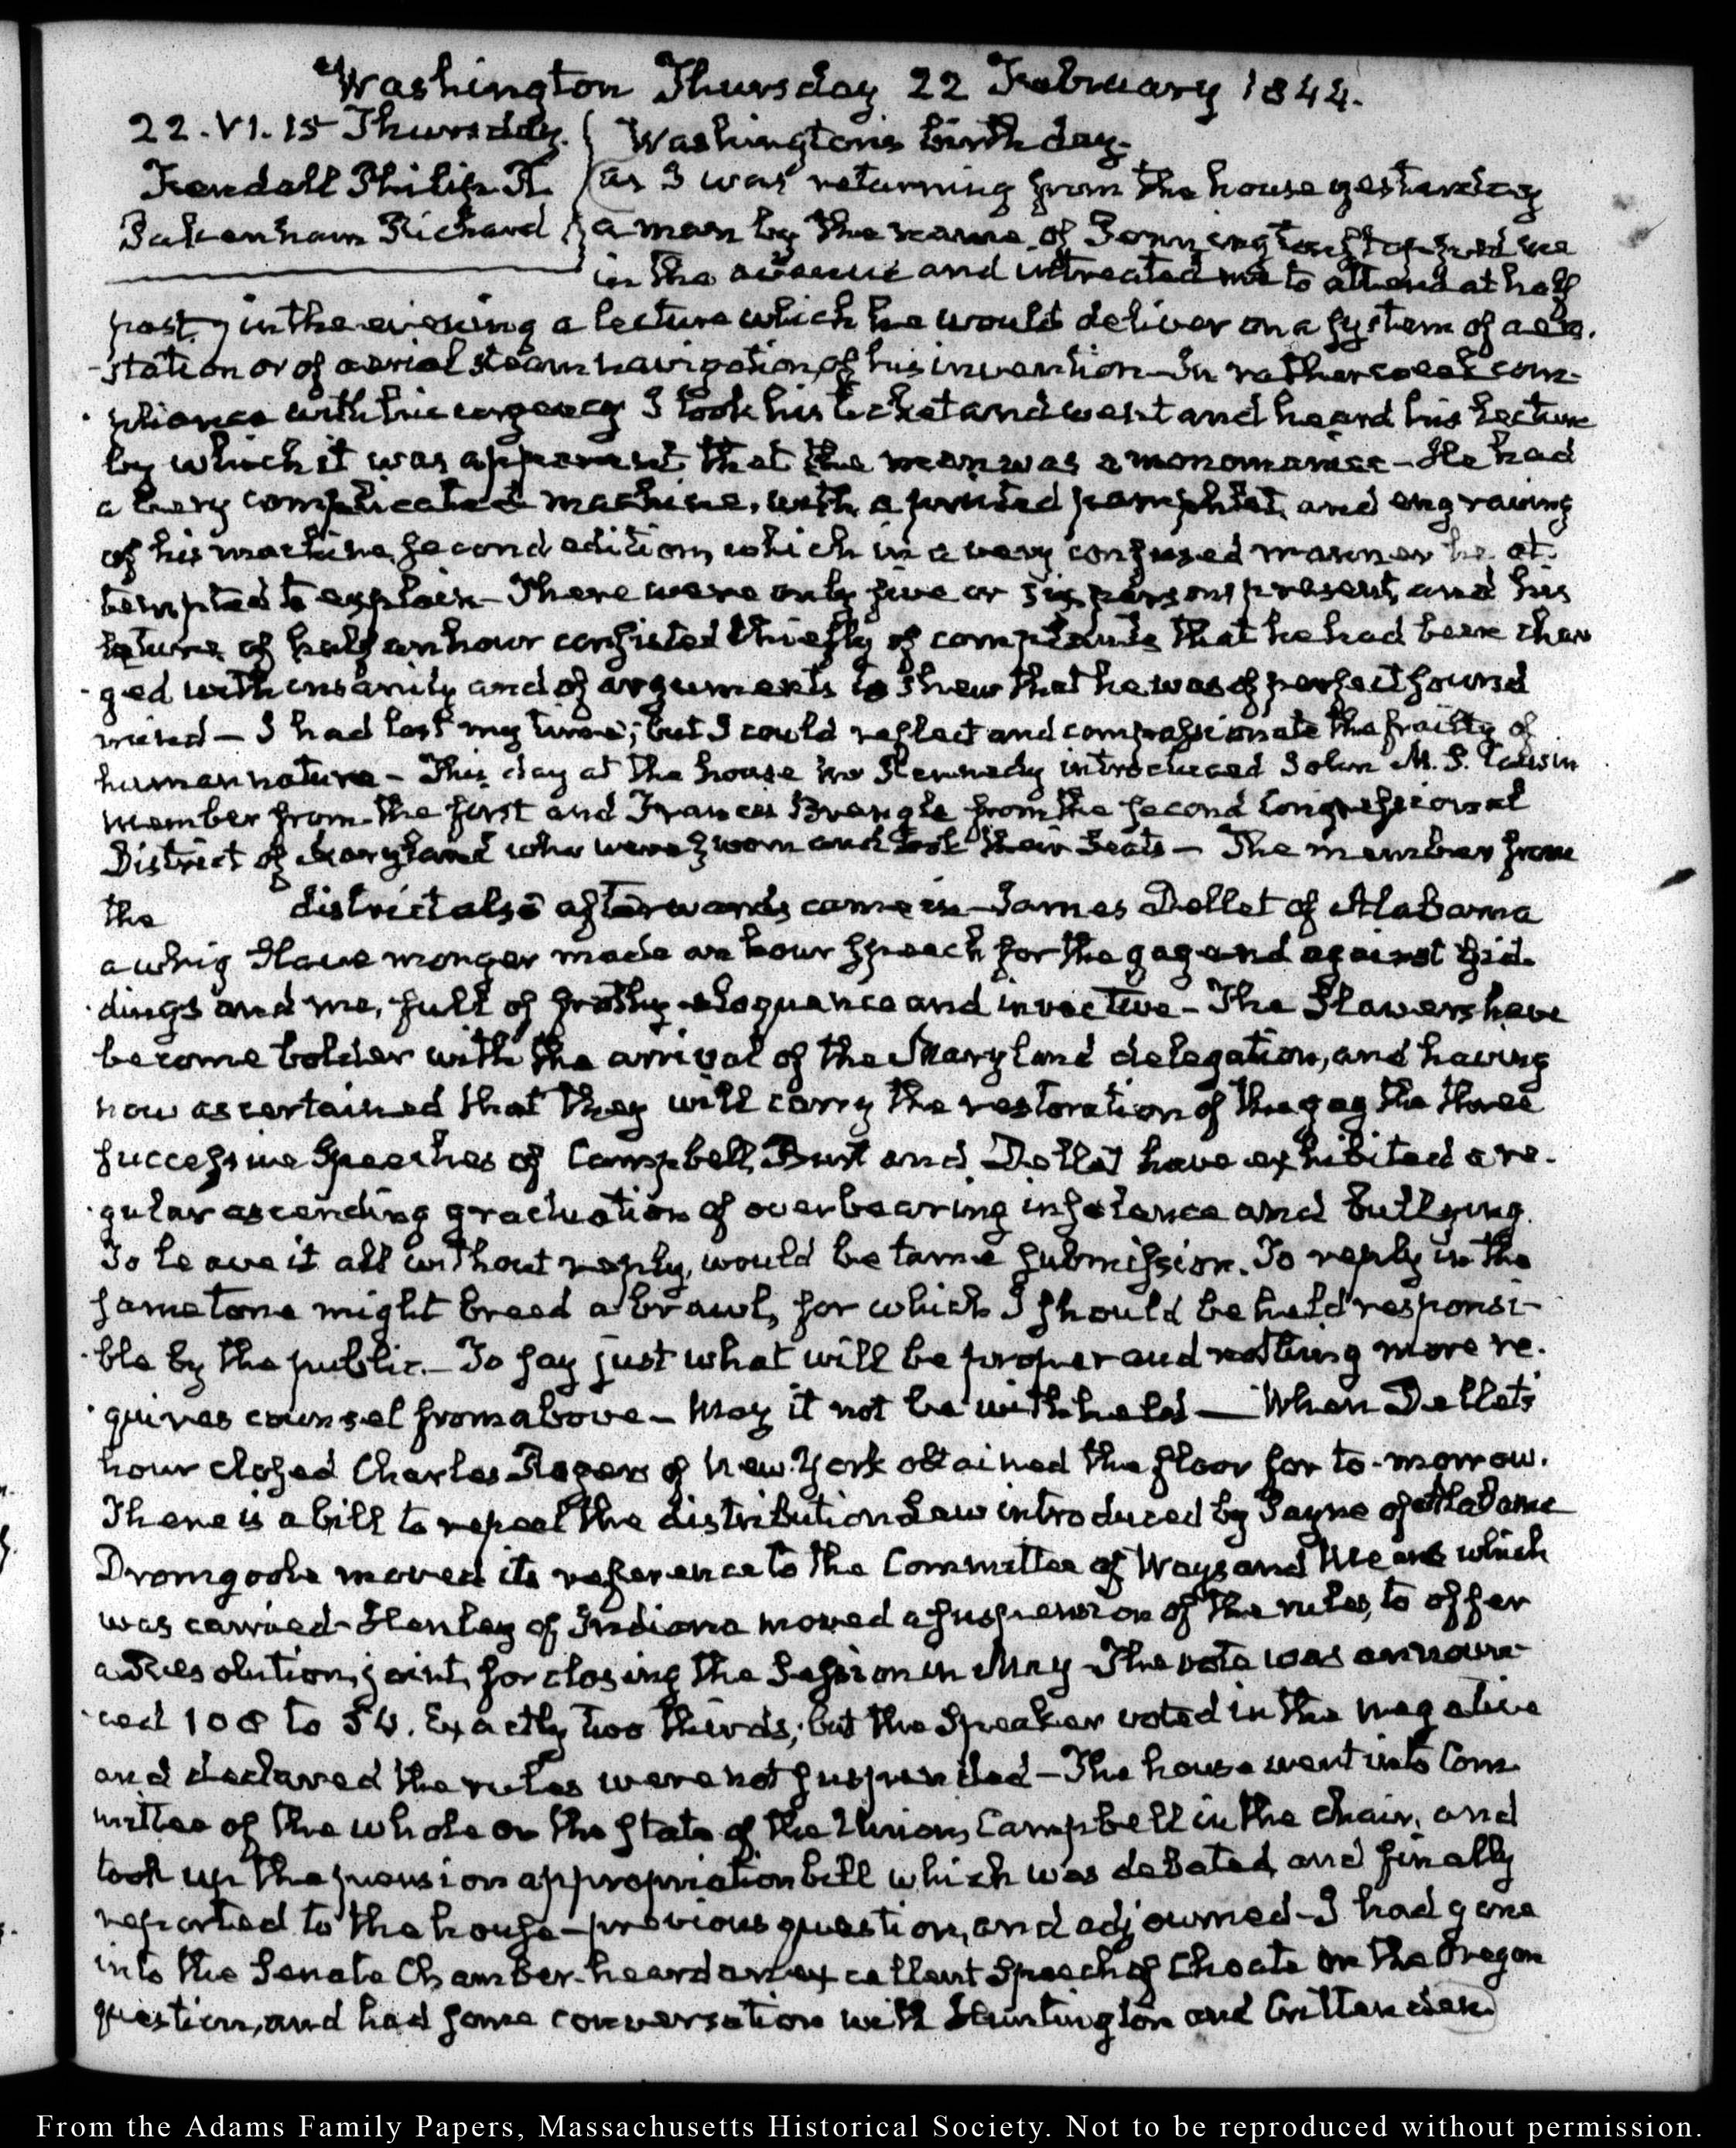 Washington Thursday 22 February 1844.
22. VI. 15 Thursday.
Kendall Philip R.
Pakenham Richard
Washington's birth day.
as I was returning from the house yesterday
a man by the name of Pennington stopped me
in the avenue and intreated me to attend at half
past 7 in the evening a lecture which he would deliver on a system of aero-
-station or of aerial steam navigation, of his invention – In rather weak com-
-pliance with his urgency I took his ticket and went and heard his lecture
by which it was apparent that the man was a monomaniac – He had
a very complicated machine, with a printed pamphlet, and engraving
of his machine, second edition, which in a very confused manner he at-
tempted to explain – There were only five or six persons present, and his
lecture of half an hour consisted chiefly of complaints that he had been char
-ged with insanity and of arguments to shew that he was of perfect sound
mind – I had lost my time; but I could reflect and compassionate the frailty of
human nature – This day at the house Mr Kennedy introduced John M. S. Causin
member from the first and Francis Brengle from the second Congressional
District of Maryland who were sworn and took their seats – The member from
the district also afterwards came in – James Dellet of Alabama
a whig slave monger made an hour speech for the gag and against Gid-
-dings and me, full of frothy eloquence and invective – The Slavers have
become bolder with the arrival of the Maryland delegation, and having
now ascertained that they will carry the restoration of the gag the three
successive speeches of Campbell, Burt and Dellet have exhibited a re-
-gular ascending graduation of overbearing insolence and bullying.
To leave it all without reply, would be tame submission. To reply in the
same tone might breed a brawl, for which I should be held responsi-
-ble by the public. – To say just what will be proper and nothing more re-
-quires counsel from above – May it not be withheld — When Dellet's
hour closed Charles Rogers of New-York obtained the floor for to-morrow.
There is a bill to repeal the distribution Law introduced by Payne of Alabama
Dromgoole moved its reference to the Committee of Ways and Means which
was carried – Henley of Indiana moved a suspension of the rules, to offer
a Resolution, joint, for closing the Session in May – The vote was announ-
-ced 108 to 54. Exactly two thirds; but the Speaker voted in the negative
and declared the rules were not suspended – The house went into Com-
mittee of the whole on the state of the Union, Campbell in the chair, and
took up the pension appropriation bill which was debated and finally
reported to the house – previous question, and adjourned – I had gone
into the Senate Chamber – heard an excellent Speech of Choate on the Oregon
question, and had some conversation with Huntington and Crittenden.
From the Adams Family Papers, Massachusetts Historical Society. Not to be reproduced without permission.